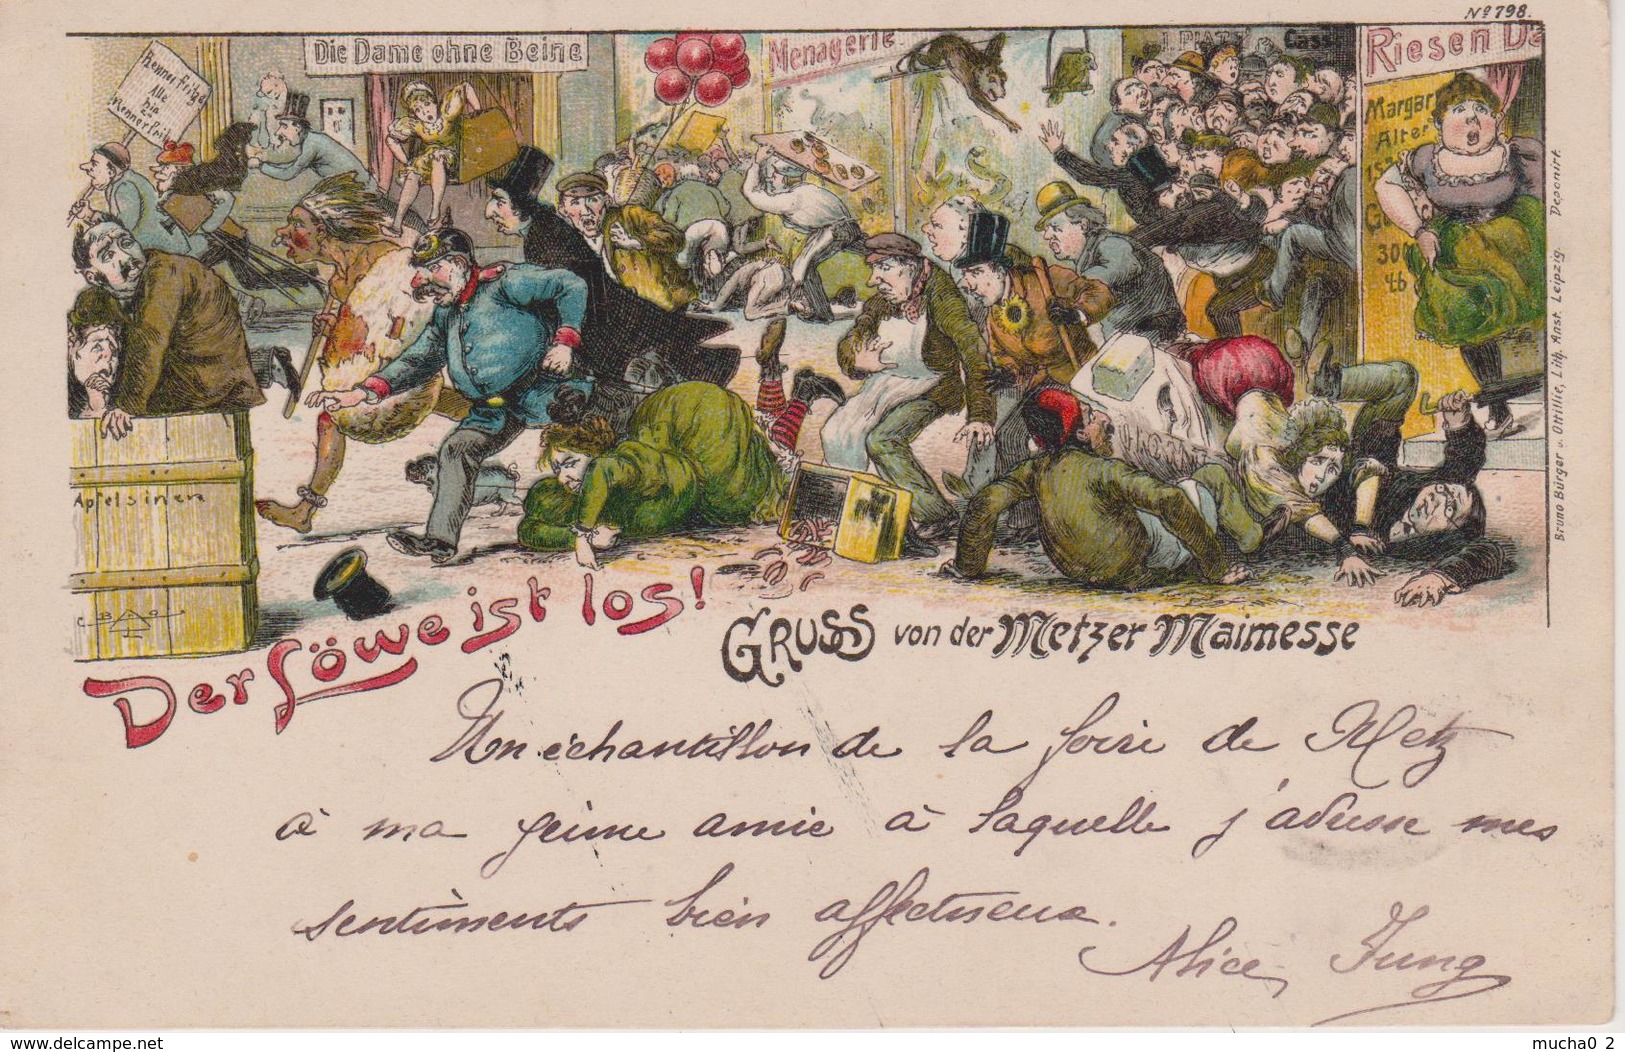 Nº 798.
Die Dame ohne Beine
Menagerie
I. PLATZ
Cass
Riesen Da
Alle
die
Margar
Alter
Ge
30
46
Apfelsinen
Bruno Bürger u. Ottillie, Lith. Anst. Leipzig. Deponirt.
Der Löwe ist los!
GRUSS von der Metzer Maimesse
Un échantillon de la foire de Metz
à ma jeune amie à laquelle j'adresse mes
sentiments bien affectueux.
Alice Jung
delcampe.net
mucha0_2